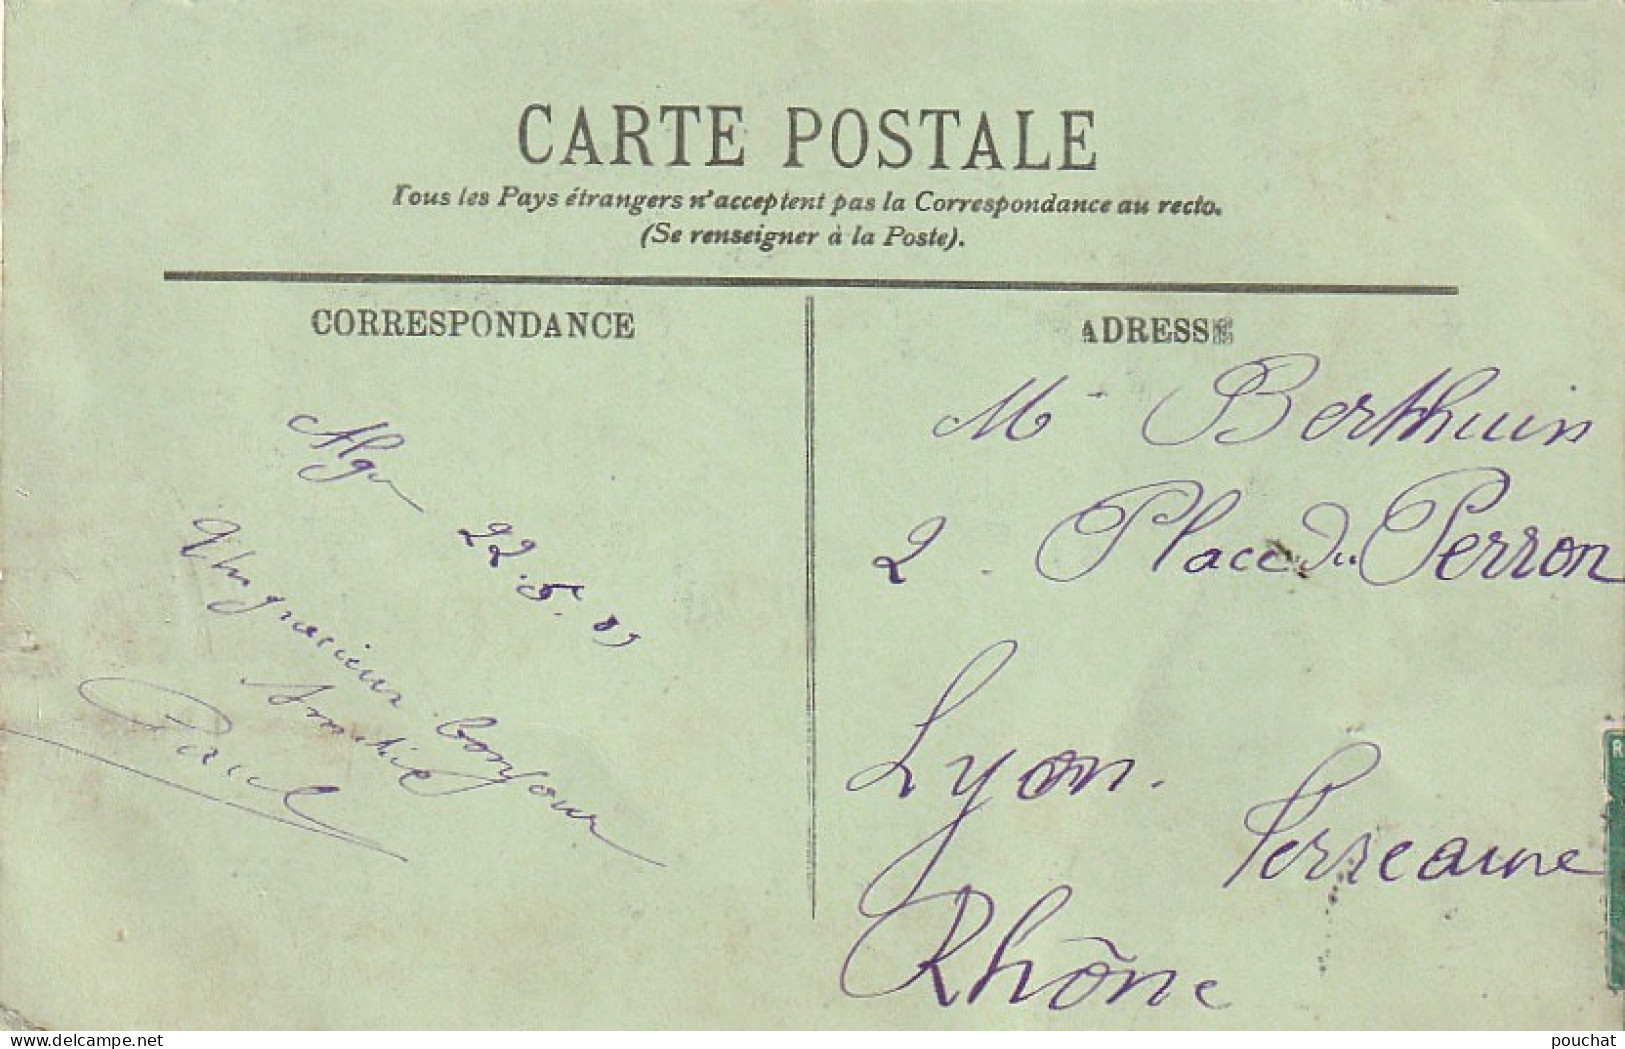 CARTE POSTALE
Tous les Pays étrangers n'acceptent pas la Correspondance au recto.
(Se renseigner à la Poste).
CORRESPONDANCE
ADRESSE
Alger
22.5.09
Un gracieux bonjour
Amitié
Paul
Mr Berthuin
2 Place du Perron
Lyon. Perreauve
Rhône
R
www.delcampe.net
pouchat